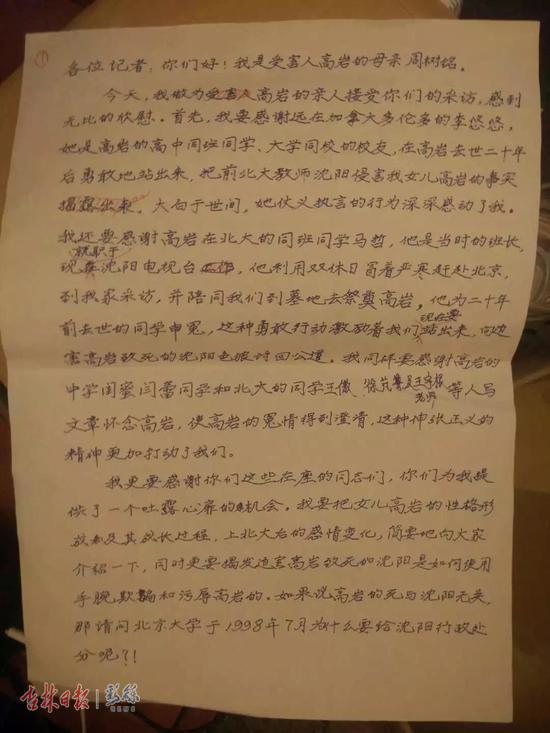 ①
各位记者：你们好！我是受害人高岩的母亲周树铭。
今天，我做为受害人高岩的亲人接受你们的采访，感到
无比的欣慰。首先，我要感谢远在加拿大多伦多的李悠悠，
她是高岩的高中同班同学、大学同校的校友，在高岩去世二十年
后勇敢地站出来，把前北大教师沈阳侵害我女儿高岩的事实
揭露出来，大白于世间，她仗义执言的行为深深感动了我。
我还要感谢高岩在北大的同班同学马哲，他是当时的班长，
现就职于沈阳电视台，他利用双休日冒着严寒赶赴北京，
到我家采访，并陪同我们到墓地去祭奠高岩，他为二十年
前去世的同学申冤，这种勇敢行动激励着我们现在要站出来，向迫
害高岩致死的沈阳也应讨回公道。我同样要感谢高岩的
中学闺蜜闫蕾同学和北大的同学王傲、徐芃 王宇根 等人写
文章怀念高岩，使高岩的冤情得到澄清，这种伸张正义的
精神更加打动了我们。
我更要感谢你们这些在座的同志们，你们为我提
供了一个吐露心扉的机会。我要把女儿高岩的性格形
成及其成长过程，上北大后的感情变化，简要地向大家
介绍一下，同时更要揭发迫害高岩致死的沈阳是如何使用
手腕欺骗和污辱高岩的。如果说高岩的死与沈阳无关，
那请问北京大学于1998年7月为什么要给沈阳行政处
分呢？！
吉林日报 彩练
NEWS